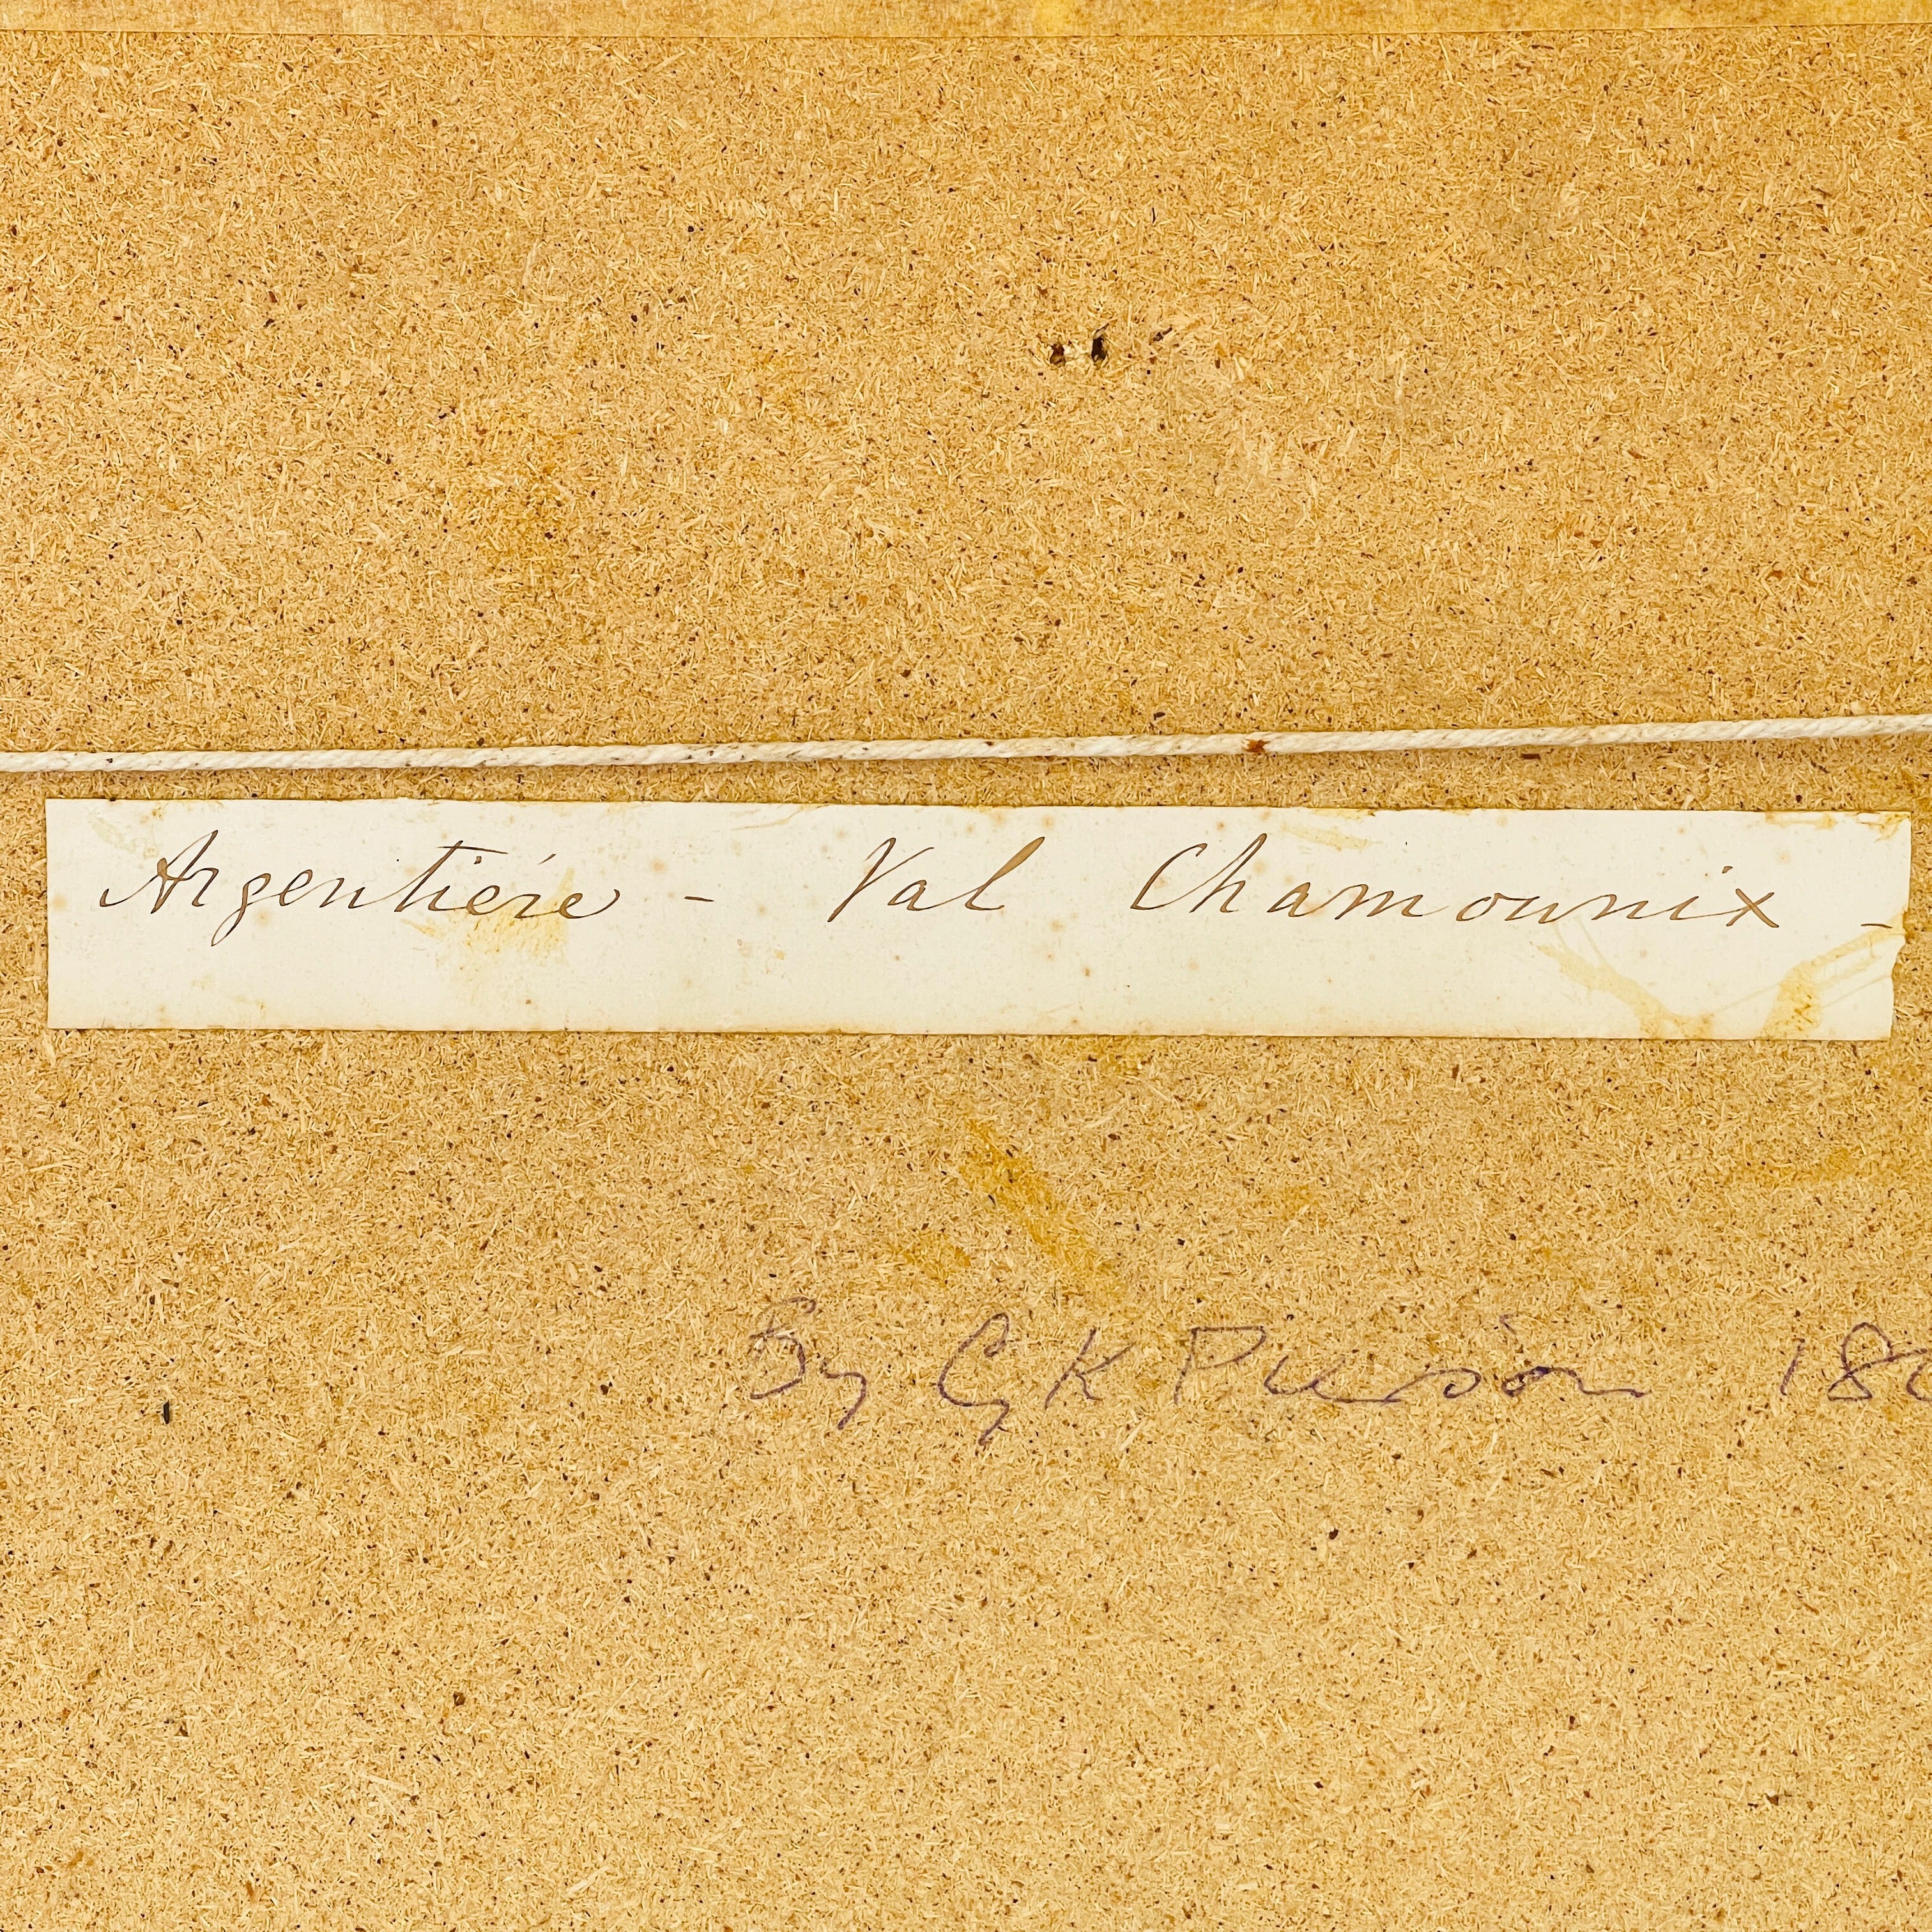 Argentiére - Val Chamounix -
By G K Pierson 18